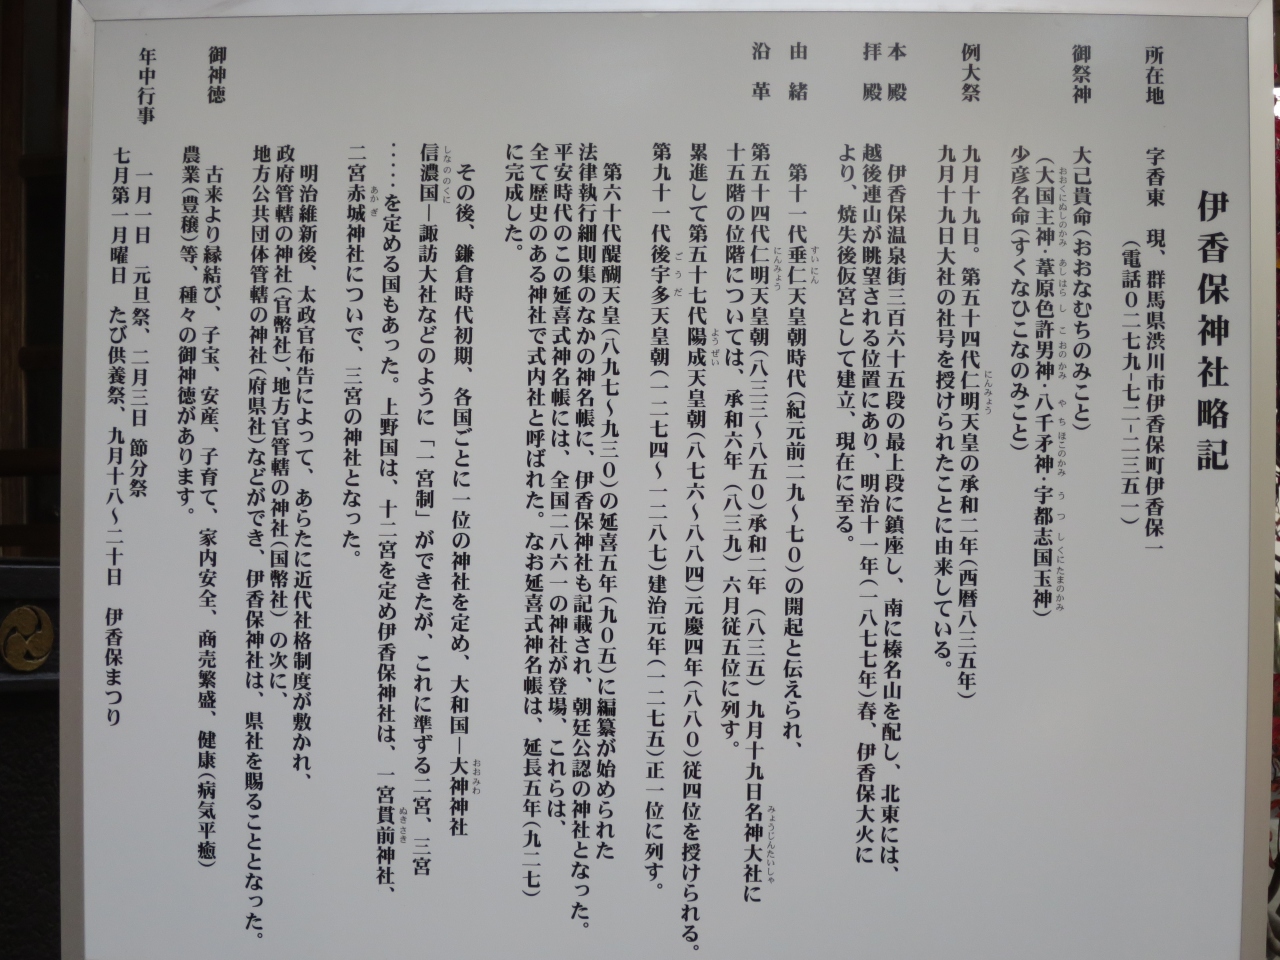 伊香保神社略記
所在地 字香東 現、群馬県渋川市伊香保町伊香保一
(電話０二七九-七二-二三五一)
御祭神 大己貴命(おおなむちのみこと)
(大国主神・葦原色許男神・八千矛神・宇都志国玉神)
おおくにぬしのかみ あしはらしこおのかみ やちほこのかみ うつしくにたまのかみ
少彦名命(すくなひこなのみこと)
例大祭 九月十九日。第五十四代仁明天皇の承和二年(西暦八三五年)
にんみょう
九月十九日大社の社号を授けられたことに由来している。
本殿 伊香保温泉街三百六十五段の最上段に鎮座し、南に榛名山を配し、北東には、
拝殿 越後連山が眺望される位置にあり、明治十一年(一八七七年)春、伊香保大火に
より、焼失後仮宮として建立、現在に至る。
由緒 第十一代垂仁天皇朝時代(紀元前二九〜七０)の開起と伝えられ、
すいにん
沿革 第五十四代仁明天皇朝(八三三〜八五０)承和二年(八三五)九月十九日名神大社に
にんみょう みょうじんたいしゃ
十五階の位階については、承和六年(八三九)六月従五位に列す。
累進して第五十七代陽成天皇朝(八七六〜八八四)元慶四年(八八０)従四位を授けられる。
ようぜい
第九十一代後宇多天皇朝(一二七四〜一二八七)建治元年(一二七五)正一位に列す。
ごうだ
第六十代醍醐天皇(八九七〜九三０)の延喜五年(九０五)に編纂が始められた
法律執行細則集のなかの神名帳に、伊香保神社も記載され、朝廷公認の神社となった。
平安時代のこの延喜式神名帳には、全国二八六一の神社が登場、これらは、
全て歴史のある神社で式内社と呼ばれた。なお延喜式神名帳は、延長五年(九二七)
に完成した。
その後、鎌倉時代初期、各国ごとに一位の神社を定め、大和国―大神神社
おおみわ
信濃国―諏訪大社などのように「一宮制」ができたが、これに準ずる二宮、三宮
しなののくに
・・・・・を定める国もあった。上野国は、十二宮を定め伊香保神社は、一宮貫前神社、
ぬきさき
二宮赤城神社についで、三宮の神社となった。
あかぎ
明治維新後、太政官布告によって、あらたに近代社格制度が敷かれ、
政府管轄の神社(官幣社)、地方官管轄の神社(国幣社)の次に、
地方公共団体管轄の神社(府県社)などができ、伊香保神社は、県社を賜ることとなった。
御神徳 古来より縁結び、子宝、安産、子育て、家内安全、商売繁盛、健康(病気平癒)
農業(豊穣)等、種々の御神徳があります。
年中行事 一月一日 元旦祭、二月三日 節分祭
七月第一月曜日 たび供養祭、九月十八〜二十日 伊香保まつり